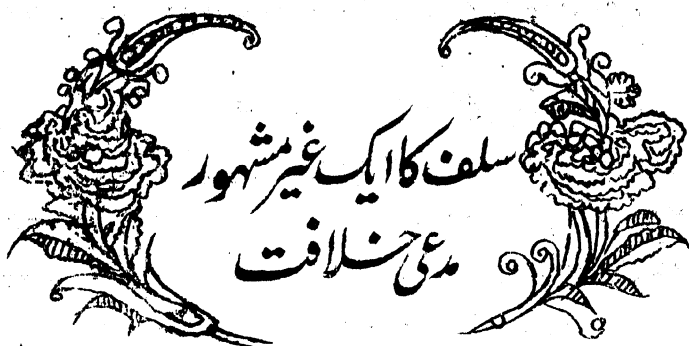 سلف کا ایک غیر مشہور
مدعی خلافت